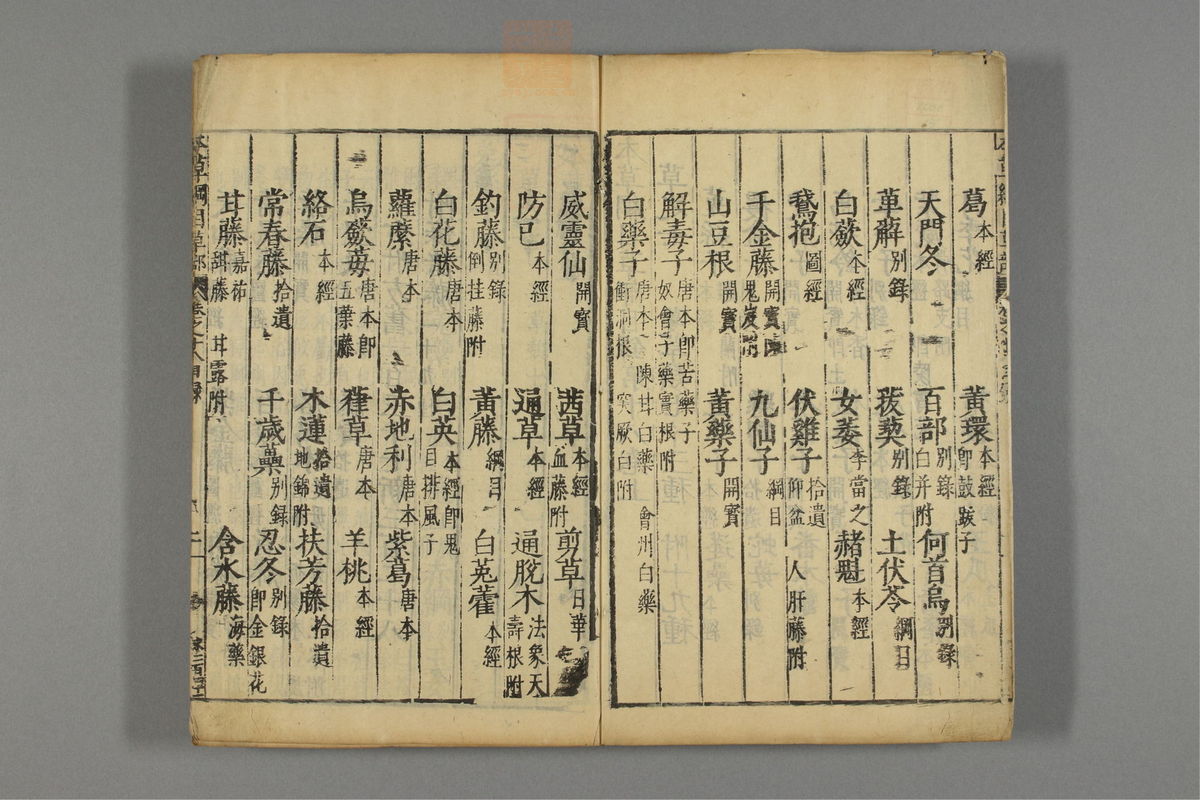 葛本經 黃環本經即鼓跋子
天門冬 百部別錄白并附 何首烏別錄
萆薢別錄 菝葜別錄 土伏苓綱目
白蘞本經 女萎李當之 赭魁本經
鵝抱圖經 伏雞子拾遺仰盆 人肝藤附
千金藤開寶 九仙子綱目
山豆根開寶 黃藥子開寶
解毒子唐本即苦藥子 奴會子藥實根附
白藥子唐本 陳家白藥 會州白藥 衝洞根 突厥白附
威靈仙開寶 茜草本經血藤附 剪草日華
防己本經 通草本經 通脫木法象天壽根附
釣藤別錄倒挂藤附 黃藤綱目 白兎藿本經
白花藤唐本 白英本經即鬼目排風子
蘿藦唐本 赤地利唐本 紫葛唐本
烏蘞莓唐本即五葉藤 葎草唐本 羊桃本經
絡石本經 木蓮拾遺地錦附 扶芳藤拾遺
常春藤拾遺 千歲蘽別錄 忍冬別錄即金銀花
甘藤嘉祐甜藤 甘露附 含水藤海藥
本草綱目草部